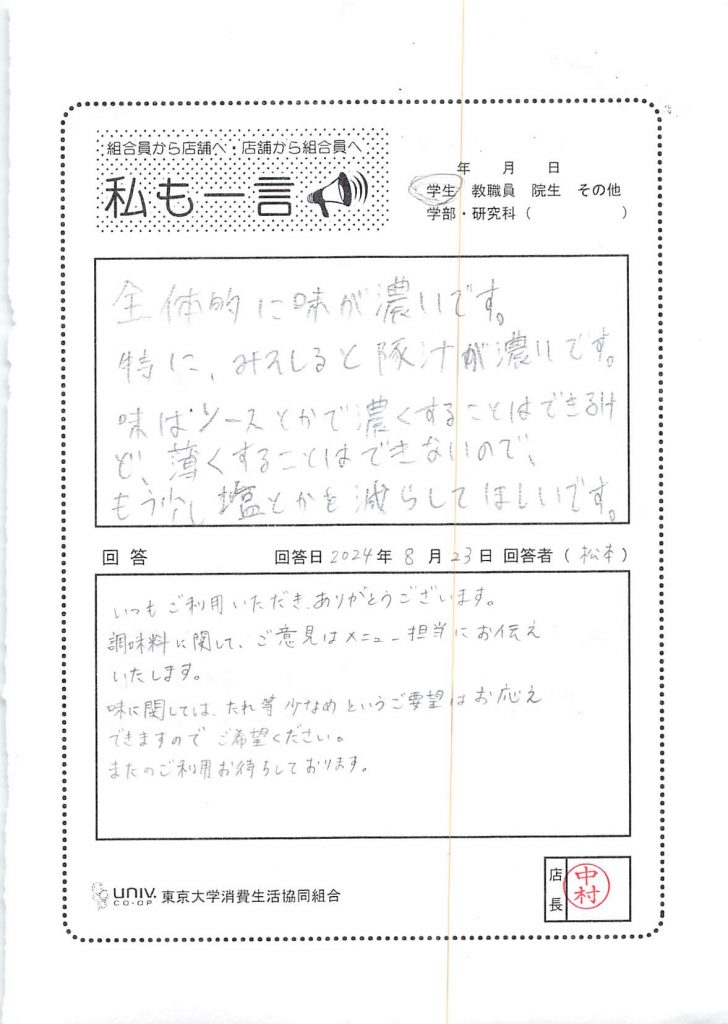 組合員から店舗へ・店舗から組合員へ
私も一言
年 月 日
学生 教職員 院生 その他
学部・研究科（ ）
全体的に味が濃いです。
特に、みそしると豚汁が濃いです。
味はソースとかで濃くすることはできるけ
ど、薄くすることはできないので、
もう少し塩とかを減らしてほしいです。
回答 回答日 2024年 8月 23日 回答者（松本）
いつもご利用いただき、ありがとうございます。
調味料に関して、ご意見はメニュー担当にお伝え
いたします。
味に関しては、たれ等少なめというご要望はお応え
できますのでご希望ください。
またのご利用お待ちしております。
UNIV. CO-OP 東京大学消費生活協同組合
店長 中村